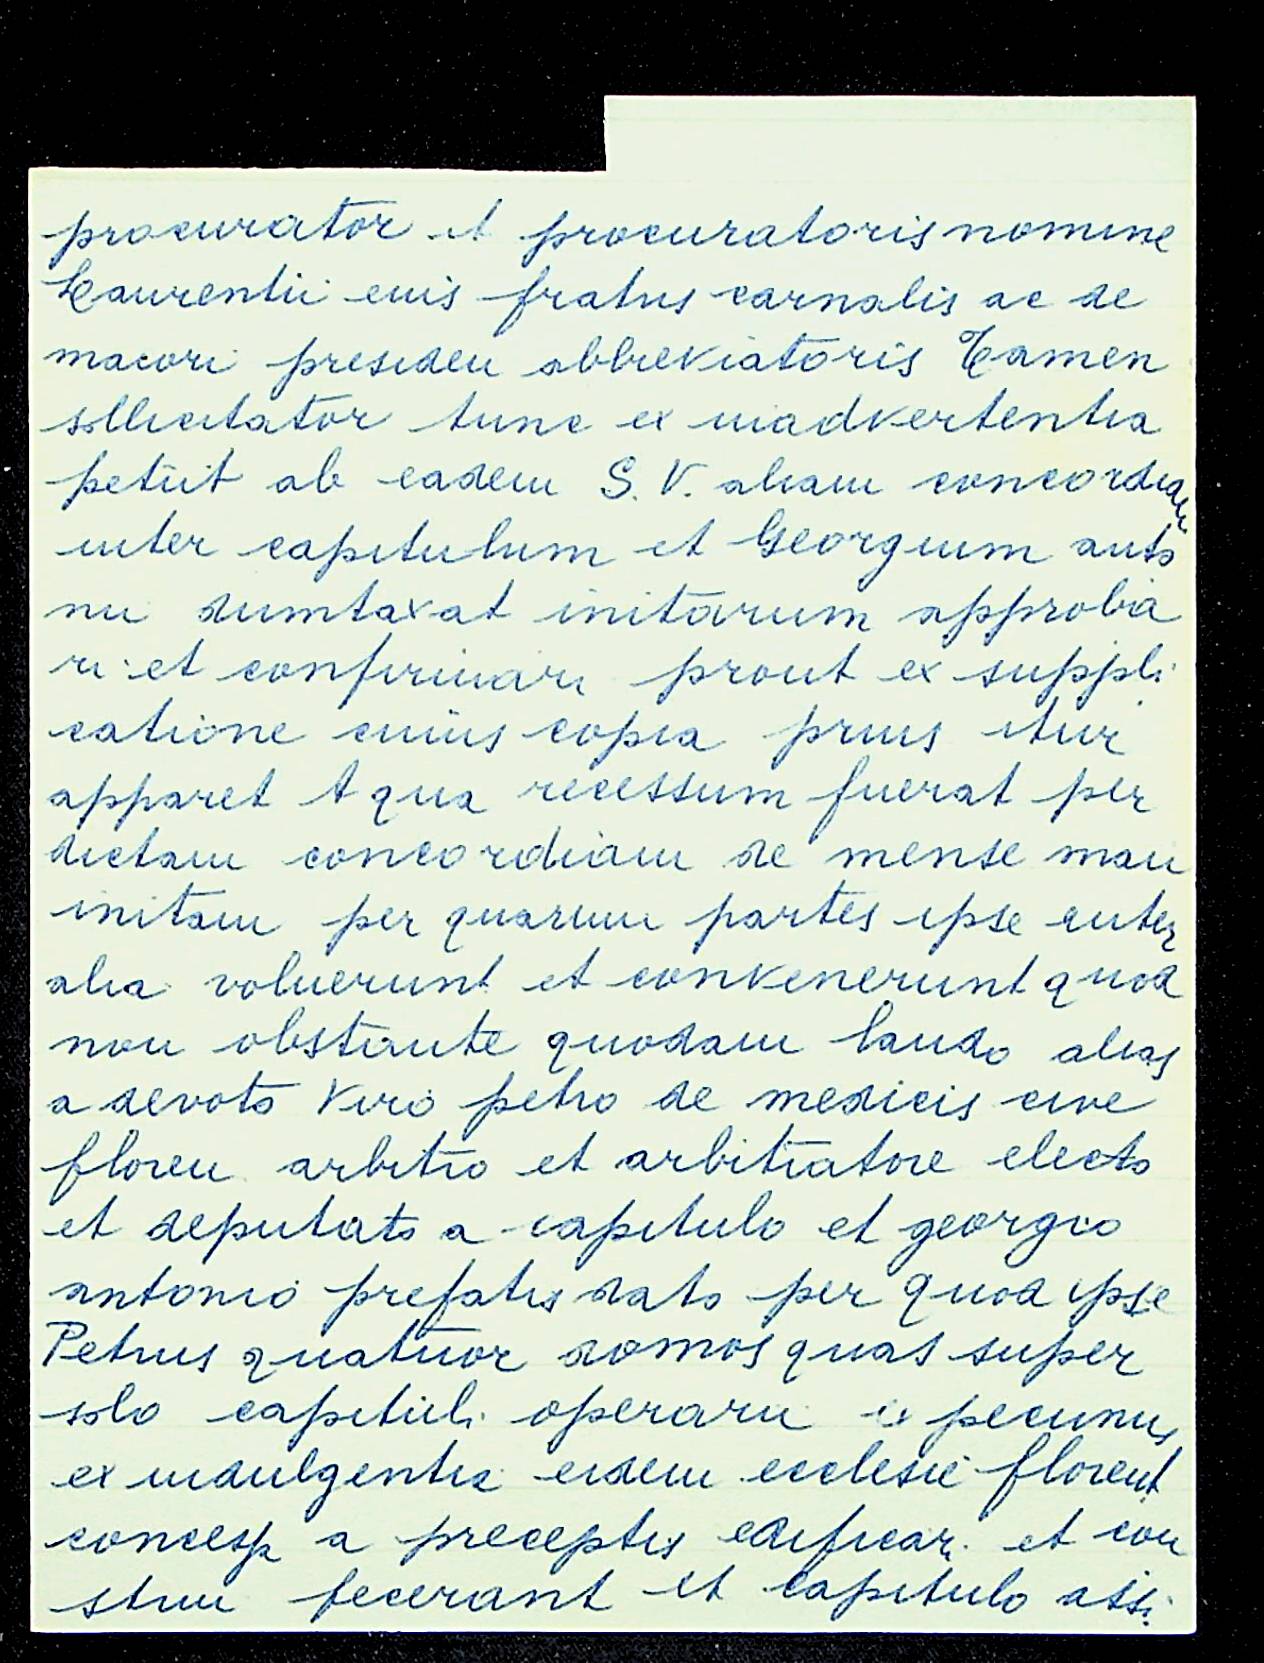 procurator et procuratoris nomine
Laurentii euis fratris carnalis ac de
maiori presiden abbreviatoris Tamen
sollicitator tunc ex inadvertentia
petiit ab eadem S. V. aliam concordiam
inter capitulum et Georgium anto
nii dumtaxat initarum approba
ri et confirmari prout ex suppli
catione cuius copia prius itur
apparet A qua recessum fuerat per
dictam concordiam de mense maii
initam per quarum partes ipse inter
alia voluerunt et convenerunt quod
non obstante quodam laudo alias
a devoto Viro petro de medicis cive
floren arbitro et arbitratore electo
et deputato a capitulo et georgio
antonio prefatis dato per quod ipse
Petrus quatuor domos quas super
solo capituli operarii ex pecuniis
ex indulgentia eidem ecclesie florent
conces a preceptis edificar. et con
strui fecerant et capitulo assi